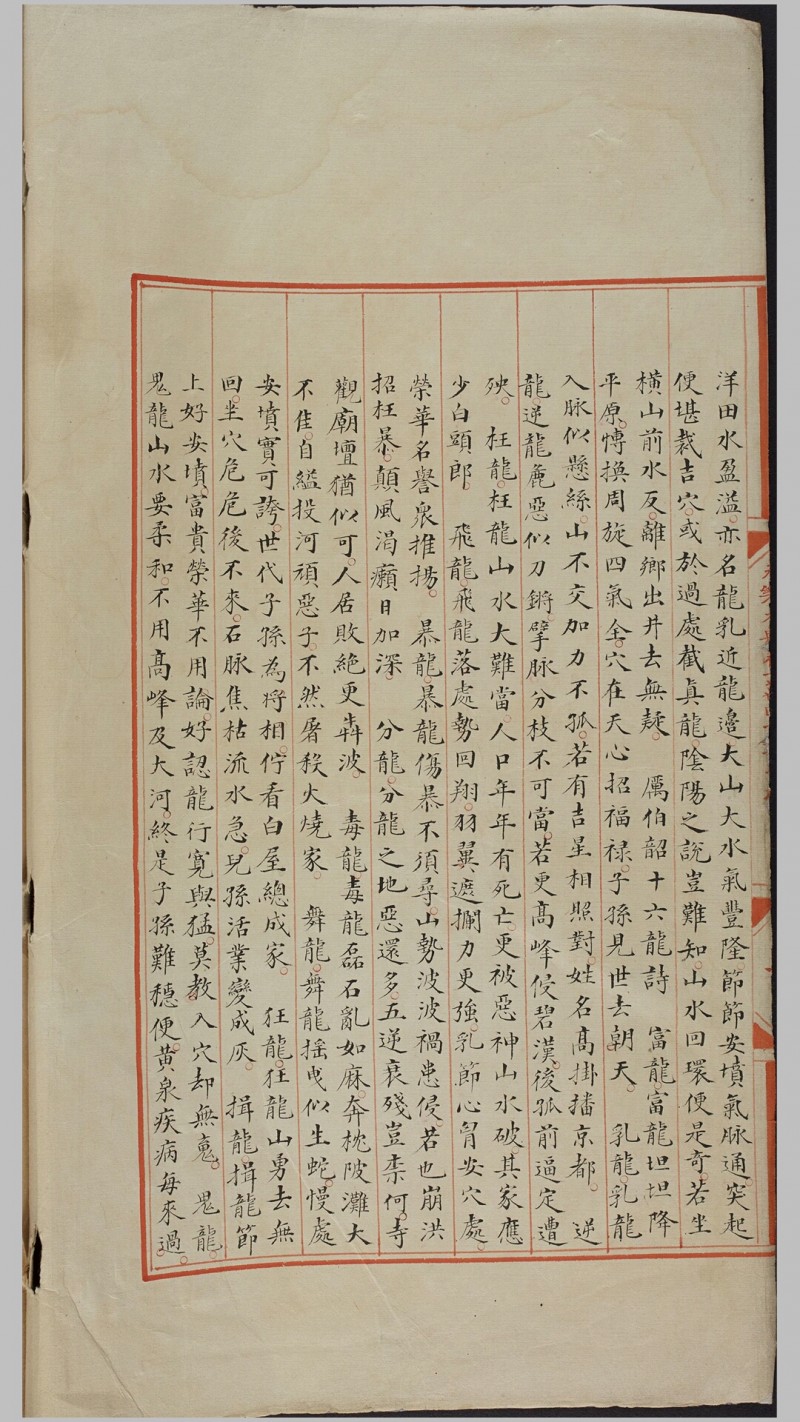 洋田水盈溢。亦名龍乳近龍邊。大山大水氣豐隆。節節安墳氣脉通。突起
便堪裁吉穴。或於過處截真龍。陰陽之說豈難知。山水回環便是奇。若坐
橫山前水反。離鄉出井去無疑。　厲伯韶十六龍詩　富龍。富龍坦坦降
平原。博換周旋四氣全。穴在天心招福禄。子孫見世去朝天。　乳龍。乳龍
入脉似懸絲。山不交加力不孤。若有吉星相照對。姓名高掛播京都。　逆
龍。逆龍麁惡似刀鎗。擘脉分枝不可當。若更高峰侵碧漢。後孤前逼定遭
殃。　枉龍。枉龍山水大難當。人口年年有死亡。更被惡神山水破。其家應
少白頭郎。　飛龍。飛龍落處勢回翔。羽翼遮攔力更強。乳節心胷安穴處。
榮華名譽衆推揚。　暴龍。暴龍傷暴不須尋。山勢波波禍患侵。若也崩洪
招枉暴。顛風渴癩日加深。　分龍。分龍之地惡還多。五逆衰殘豈柰何。寺
觀廟壇猶似可。人居敗絕更犇波。　毒龍。毒龍磊石亂如麻。奔枕陂灘大
不佳。自縊投河頑惡子。不然屠殺火燒家。　舞龍。舞龍摇曳似生蛇。慢處
安墳實可誇。世代子孫為将相。佇看白屋總成家。　狂龍。狂龍山勇去無
回。坐穴危危後不來。石脉焦枯流水急。兒孫活業變成灰。　揖龍。揖龍節
上好安墳。富貴榮華不用論。好認龍行寛與猛。莫教入穴却無䰟。　鬼龍。
鬼龍山水要柔和。不用高峰及大河。終是子孫難穩便。黄泉疾病每來過。